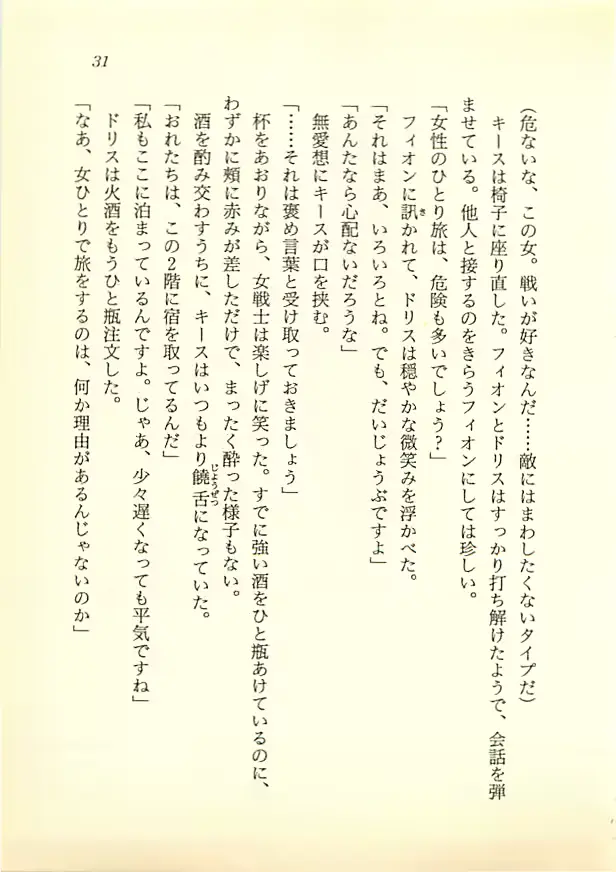 31
(危ないな、この女。戦いが好きなんだ……敵にはまわしたくないタイプだ)
キースは椅子に座り直した。フィオンとドリスはすっかり打ち解けたようで、会話を弾
ませている。他人と接するのをきらうフィオンにしては珍しい。
「女性のひとり旅は、危険も多いでしょう?」
フィオンに訊かれて、ドリスは穏やかな微笑みを浮かべた。
「それはまあ、いろいろとね。でも、だいじょうぶですよ」
「あんたなら心配ないだろうな」
無愛想にキースが口を挟む。
「……それは褒め言葉と受け取っておきましょう」
杯をあおりながら、女戦士は楽しげに笑った。すでに強い酒をひと瓶あけているのに、
わずかに頬に赤みが差しただけで、まったく酔った様子もない。
酒を酌み交わすうちに、キースはいつもより饒舌になっていた。
「おれたちは、この2階に宿を取ってるんだ」
「私もここに泊まっているんですよ。じゃあ、少々遅くなっても平気ですね」
ドリスは火酒をもうひと瓶注文した。
「なあ、女ひとりで旅をするのは、何か理由があるんじゃないのか」